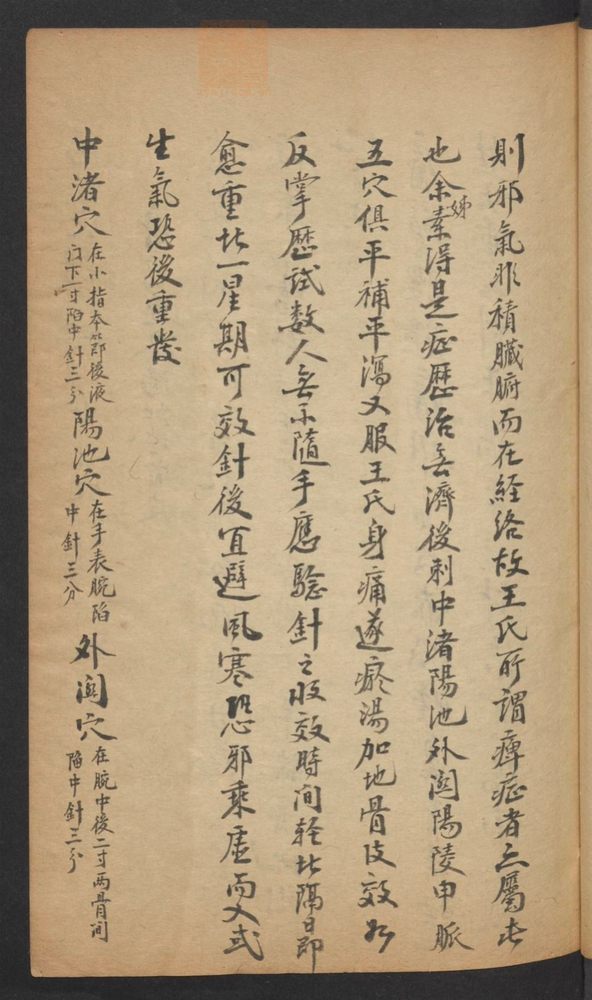 則邪氣非積臟腑而在経络故王氏所謂痺症者亦屬此
也余姊素得是症歴治無濟後刺中渚陽池外関陽陵申脈
五穴俱平補平瀉又服王氏身痛逐瘀湯加地骨皮效如
反掌歴試数人無不隨手應驗針之收效時间輕此隔日即
愈重此一星期可效針後宜避風寒恐邪乘虛而入或
生氣恐後重發
中渚穴在小指本節後液门下一寸陷中針三分陽池穴在手表腕陷中針三分外関穴在腕中後二寸两骨间陷中針三分